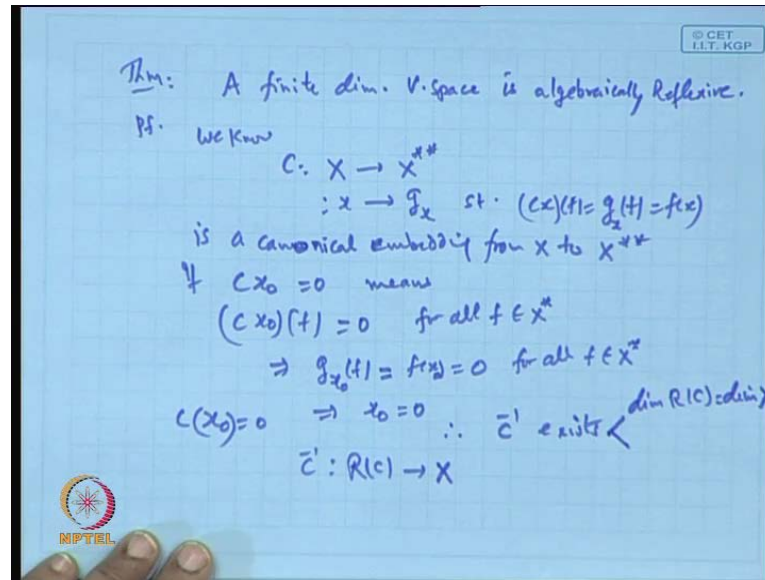 © CET
I.I.T. KGP
Thm: A finite dim. V. space is algebraically Reflexive.
Pf. We know
C: X → X**
: x → g_x st. (Cx)(f) = g_x(f) = f(x)
is a canonical embedding from X to X**
If Cx₀ = 0 means
(Cx₀)(f) = 0 for all f ∈ X*
⇒ g_x₀(f) = f(x₀) = 0 for all f ∈ X*
C(x₀) = 0 ⇒ x₀ = 0 ∴ C⁻¹ exists < dim R(C) = dim X
C⁻¹ : R(C) → X
NPTEL